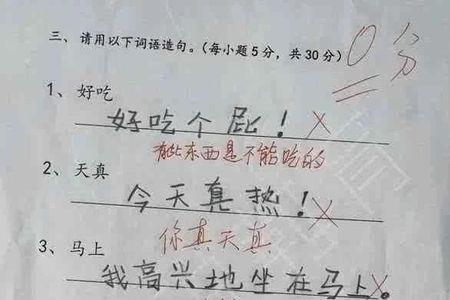 三、请用以下词语造句。(每小题5分，共30分) 0分
1、好吃
好吃个屁！×
有些东西是不能吃的
2、天真
今天真热！×
你真天真
3、马上
我高兴地坐在马上。×